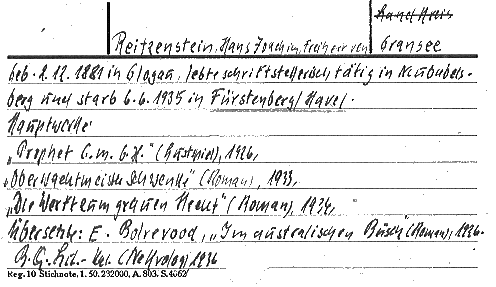 Land Kreis
Reitzenstein, Hans Joachim, Freiherr von Gransee
geb. 1.12.1881 in Glogau, lebte schriftstellerisch tätig in Neubabels-
berg und starb 6.6.1935 in Fürstenberg/Havel.
Hauptwerke:
„Prophet G.m.b.H." (Lustspiel), 1926,
„Oberwachtmeister Schwenke" (Roman), 1933,
„Die Werft zum grauen Hecht" (Roman), 1934,
Übersetzte: E. Bolrevood, „Im australischen Busch" (Roman), 1926.
Lit.- (Nekrolog) 1936
Reg. 10 Stichnote, 1. 50. 232000, A. 803. S.4062